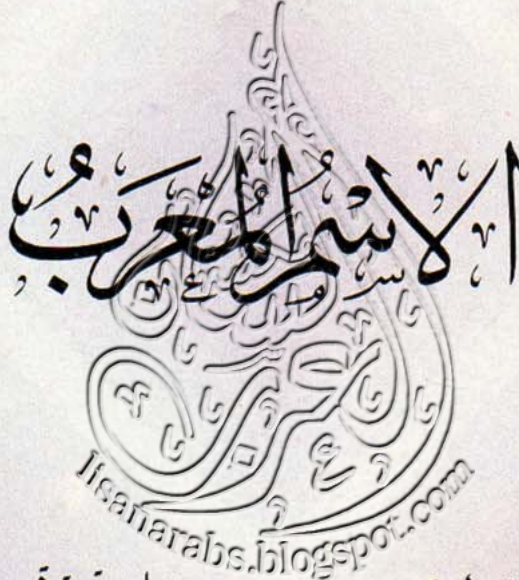 الاسْمُ المُعْرَبُ
lisanarabs.blogspot.com